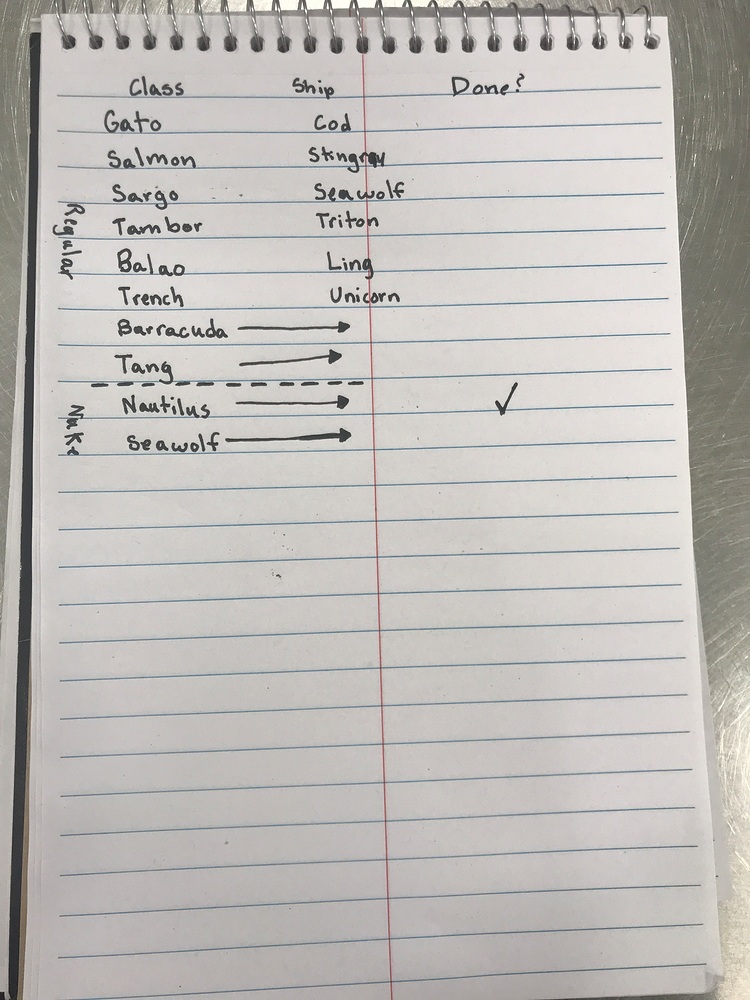 Class Ship Done?
Gato Cod
Salmon Stingray
Sargo Seawolf
Tambor Triton
Balao Ling
Trench Unicorn
Barracuda →
Tang →
Nautilus → ✓
Seawolf →
Regular
Nuke